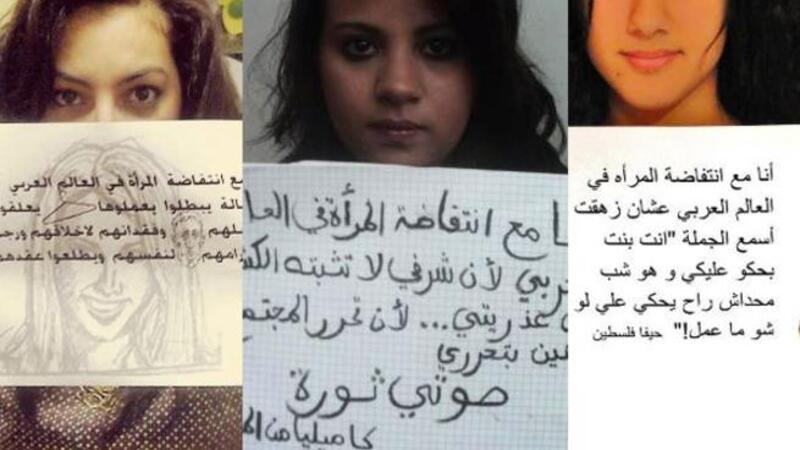 مع انتفاضة المرأة في العالم العربي
يبطلوا يعملوها يعلقوا
وفقدانهم لاخلاقهم
لنفسهم ويطلعوا عقدهم
مع انتفاضة المرأة في
لأن شرفي لا تثبته
عذريتي... لأن تحرر
بتحرري
صوتي ثورة
كاميليا من
أنا مع انتفاضة المرأه في
العالم العربي عشان زهقت
أسمع الجملة "انت بنت
بحكو عليكي و هو شب
محداش راح يحكي علي لو
شو ما عمل!" حيفا فلسطين